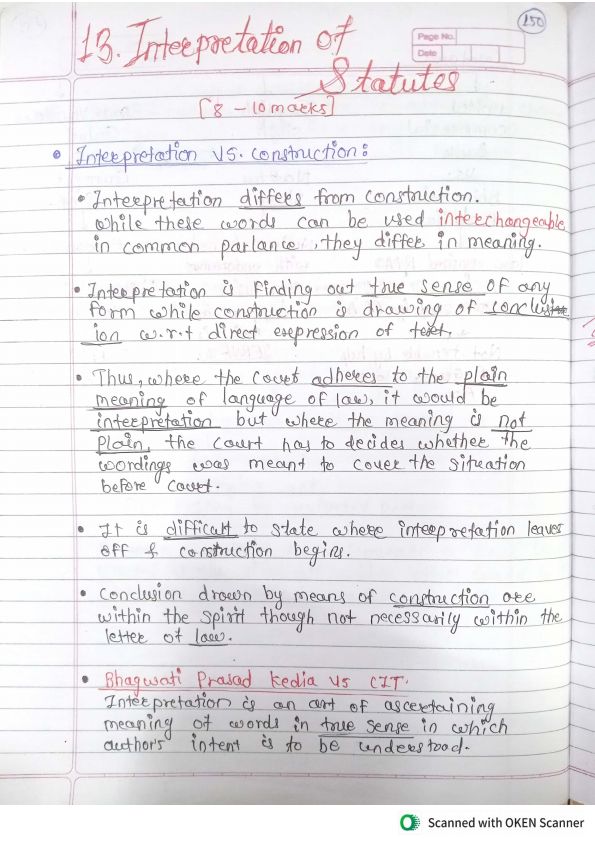 250
Page No.
Date
13. Interpretation of
Statutes
[8 - 10 marks]
Interpretation VS. Construction:
• Interpretation differs from construction.
while these words can be used interchangeable
in common parlance, they differ in meaning.
• Interpretation is finding out true sense of any
form while construction is drawing of conclus
ion w.r.t direct expression of text.
• Thus, where the Court adheres to the plain
meaning of language of law, it would be
interpretation but where the meaning is not
Plain, the court has to decides whether the
wordings was meant to cover the situation
before Court.
• It is difficult to state where interpretation leaves
off & construction begins.
• Conclusion drawn by means of construction are
within the spirit though not necessarily within the
letter of law.
• Bhagwati Prasad Kedia VS CIT.
Interpretation is an art of ascertaining
meaning of words in true sense in which
author's intent is to be understood.
Scanned with OKEN Scanner